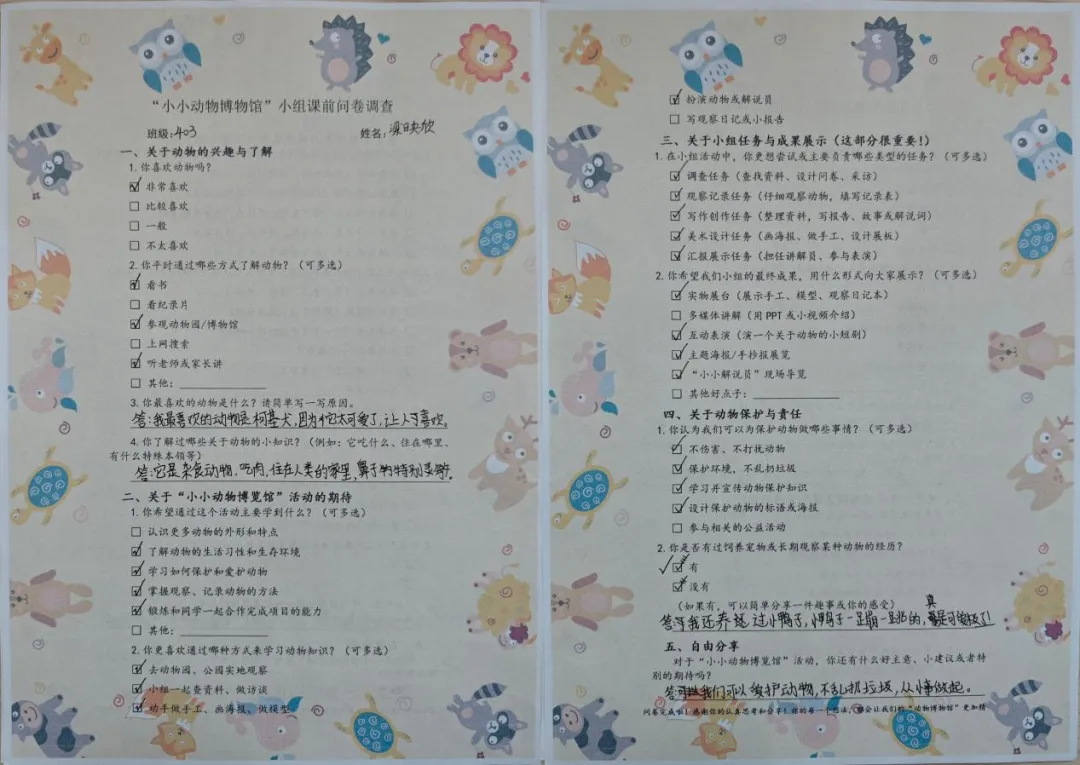 “小小动物博物馆”小组课前问卷调查
班级:403 姓名:梁映欣
一、关于动物的兴趣与了解
1. 你喜欢动物吗？
☑ 非常喜欢
☐ 比较喜欢
☐ 一般
☐ 不太喜欢
2. 你平时通过哪些方式了解动物？（可多选）
☑ 看书
☐ 看纪录片
☑ 参观动物园/博物馆
☐ 上网搜索
☑ 听老师或家长讲
☐ 其他：
3. 你最喜欢的动物是什么？请简单写一写原因。
答:我最喜欢的动物是柯基犬,因为它太可爱了,让人喜欢。
4. 你了解过哪些关于动物的小知识？（例如：它吃什么、住在哪里、
有什么特殊本领等）
答:它是杂食动物,吃肉,住在人类的家里,鼻子特别
二、关于“小小动物博览馆”活动的期待
1. 你希望通过这个活动主要学到什么？（可多选）
☐ 认识更多动物的外形和特点
☑ 了解动物的生活习性和生存环境
☑ 学习如何保护和爱护动物
☑ 掌握观察、记录动物的方法
☑ 锻炼和同学一起合作完成项目的能力
☐ 其他：
2. 你更喜欢通过哪种方式来学习动物知识？（可多选）
☑ 去动物园、公园实地观察
☑ 小组一起查资料、做访谈
☑ 动手做手工、画海报、做模型
☑ 扮演动物或解说员
☐ 写观察日记或小报告
三、关于小组任务与成果展示（这部分很重要！）
1. 在小组活动中，你更想尝试或主要负责哪些类型的任务？（可多选）
☑ 调查任务（查找资料、设计问卷、采访）
☑ 观察记录任务（仔细观察动物，填写记录表）
☑ 写作创作任务（整理资料，写报告、故事或解说词）
☑ 美术设计任务（画海报、做手工、设计展板）
☑ 汇报展示任务（担任讲解员、参与表演）
2. 你希望我们小组的最终成果，用什么形式向大家展示？（可多选）
☑ 实物展台（展示手工、模型、观察日记本）
☐ 多媒体讲解（用 PPT 或小视频介绍）
☑ 互动表演（演一个关于动物的小短剧）
☑ 主题海报/手抄报展览
☑ “小小解说员”现场导览
☐ 其他好点子：
四、关于动物保护与责任
1. 你认为我们可以为保护动物做哪些事情？（可多选）
☑ 不伤害、不打扰动物
☑ 保护环境，不乱扔垃圾
☑ 学习并宣传动物保护知识
☑ 设计保护动物的标语或海报
☐ 参与相关的公益活动
2. 你是否有过饲养宠物或长期观察某种动物的经历？
☑ 有
☑ 没有
（如果有，可以简单分享一件趣事或你的感受）
答:我还养过小鸭子,小鸭子一蹦一跳的,真是可爱极了!
五、自由分享
对于“小小动物博物馆”活动，你还有什么好主意、小建议或者特
别的期待吗？
答:我们可以保护动物,不乱扔垃圾,从做起。
问卷完成啦！感谢你的认真思考和分享！你的每一个想法，都会让我们的“动物博物馆”更加精